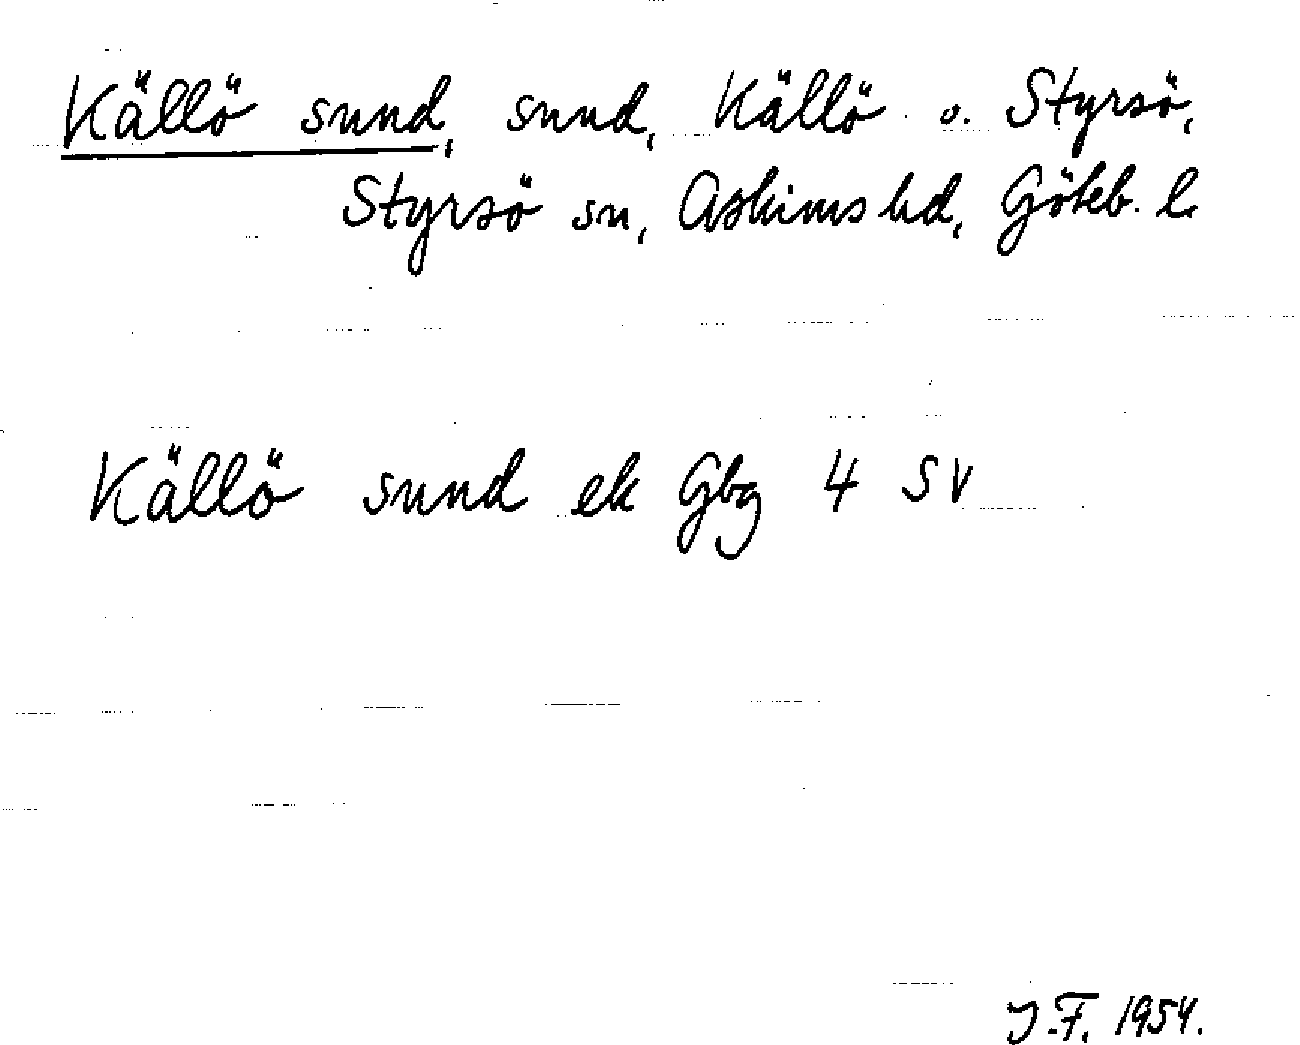 Källö sund, sund, Källö o. Styrsö,
Styrsö sn, Askims hd, Göteb. l.
Källö sund ek Gbg 4 SV
J.F. 1954.